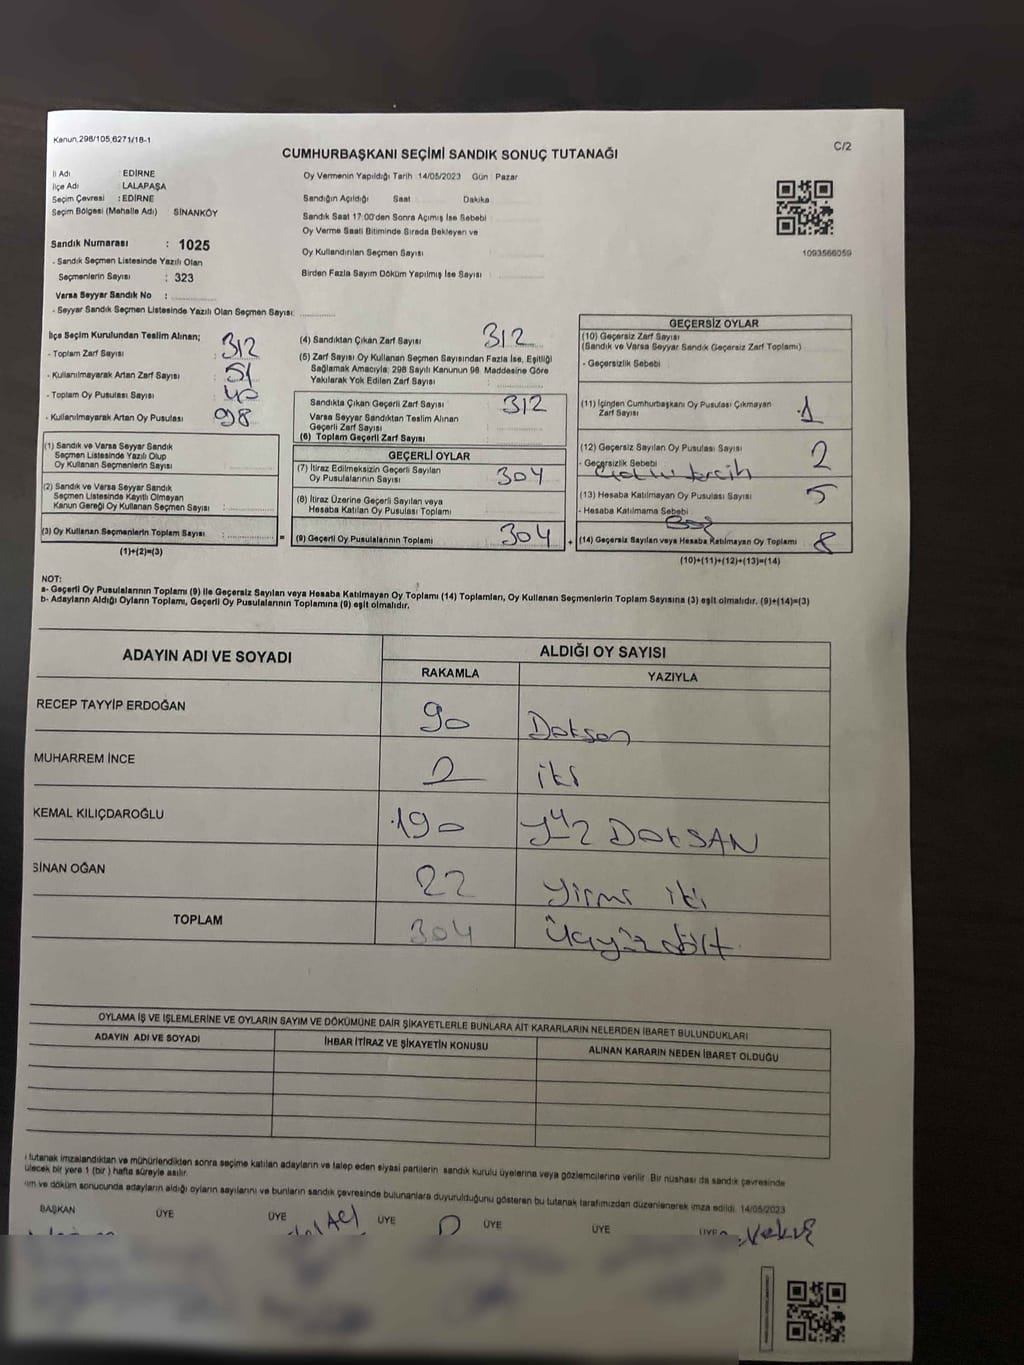 Kanun,298/105,6271/18-1
C/2
CUMHURBAŞKANI SEÇİMİ SANDIK SONUÇ TUTANAĞI
İl Adı : EDİRNE
İlçe Adı LALAPAŞA
Seçim Çevresi : EDİRNE
Seçim Bölgesi (Mahalle Adı) SİNANKÖY
Sandık Numarası : 1025
- Sandık Seçmen Listesinde Yazılı Olan
Seçmenlerin Sayısı : 323
Varsa Seyyar Sandık No :
- Seyyar Sandık Seçmen Listesinde Yazılı Olan Seçmen Sayısı:
Oy Vermenin Yapıldığı Tarih :14/05/2023 Gün : Pazar
Sandığın Açıldığı Saat Dakika
Sandık Saat 17:00'den Sonra Açımış İse Sebebi
Oy Verme Saati Bitiminde Sırada Bekleyen ve
Oy Kullandırılan Seçmen Sayısı
Birden Fazla Sayım Döküm Yapılmış İse Sayısı :
1093566059
İlçe Seçim Kurulundan Teslim Alınan;
- Toplam Zarf Sayısı : 312
- Kullanılmayarak Artan Zarf Sayısı : 51
- Toplam Oy Pusulası Sayısı :
- Kullanılmayarak Artan Oy Pusulası : 98
(1) Sandık ve Varsa Seyyar Sandık
Seçmen Listesinde Yazılı Olup
Oy Kullanan Seçmenlerin Sayısı
(2) Sandık ve Varsa Seyyar Sandık
Seçmen Listesinde Kayıtlı Olmayan
Kanun Gereği Oy Kullanan Seçmen Sayısı :
(3) Oy Kullanan Seçmenlerin Toplam Sayısı : =
(1)+(2)=(3)
(4) Sandıktan Çıkan Zarf Sayısı 312
(5) Zarf Sayısı Oy Kullanan Seçmen Sayısından Fazla İse, Eşitliği
Sağlamak Amacıyla; 298 Sayılı Kanunun 98. Maddesine Göre
Yakılarak Yok Edilen Zarf Sayısı :
Sandıkta Çıkan Geçerli Zarf Sayısı 312
Varsa Seyyar Sandıktan Teslim Alınan
Geçerli Zarf Sayısı
(6) Toplam Geçerli Zarf Sayısı
GEÇERLİ OYLAR
(7) İtiraz Edilmeksizin Geçerli Sayılan
Oy Pusulalarının Sayısı : 304
(8) İtiraz Üzerine Geçerli Sayılan veya
Hesaba Katılan Oy Pusulası Toplamı
(9) Geçerli Oy Pusulalarının Toplamı 304 +
GEÇERSİZ OYLAR
(10) Geçersiz Zarf Sayısı
(Sandık ve Varsa Seyyar Sandık Geçersiz Zarf Toplamı)
- Geçersizlik Sebebi
(11) İçinden Cumhurbaşkanı Oy Pusulası Çıkmayan
Zarf Sayısı 1
(12) Geçersiz Sayılan Oy Pusulası Sayısı 2
- Geçersizlik Sebebi
(13) Hesaba Katılmayan Oy Pusulası Sayısı 5
- Hesaba Katılmama Sebebi Boş
(14) Geçersiz Sayılan veya Hesaba Katılmayan Oy Toplamı 8
(10)+(11)+(12)+(13)=(14)
NOT:
a- Geçerli Oy Pusulalarının Toplamı (9) ile Geçersiz Sayılan veya Hesaba Katılmayan Oy Toplamı (14) Toplamları, Oy Kullanan Seçmenlerin Toplam Sayısına (3) eşit olmalıdır. (9)+(14)=(3)
b- Adayların Aldığı Oyların Toplamı, Geçerli Oy Pusulalarının Toplamına (9) eşit olmalıdır.
ADAYIN ADI VE SOYADI ALDIĞI OY SAYISI
RAKAMLA YAZIYLA
RECEP TAYYİP ERDOĞAN 90 Doksan
MUHARREM İNCE 2 iki
KEMAL KILIÇDAROĞLU 190 yüz DOKSAN
SİNAN OĞAN 22 yirmi iki
TOPLAM 304 üçyüz dört
OYLAMA İŞ VE İŞLEMLERİNE VE OYLARIN SAYIM VE DÖKÜMÜNE DAİR ŞİKAYETLERLE BUNLARA AİT KARARLARIN NELERDEN İBARET BULUNDUKLARI
ADAYIN ADI VE SOYADI İHBAR İTİRAZ VE ŞİKAYETİN KONUSU ALINAN KARARIN NEDEN İBARET OLDUĞU
tutanak imzalandıktan ve mühürlendikten sonra seçime katılan adayların ve talep eden siyasi partilerin sandık kurulu üyelerine veya gözlemcilerine verilir. Bir nüshası da sandık çevresinde
ülecek bir yere 1 (bir ) hafta süreyle asılır.
ım ve döküm sonucunda adayların aldığı oyların sayılarını ve bunların sandık çevresinde bulunanlara duyurulduğunu gösteren bu tutanak tarafımızdan düzenlenerek imza edildi. 14/05/2023
BAŞKAN ÜYE ÜYE ÜYE ÜYE ÜYE ÜYE